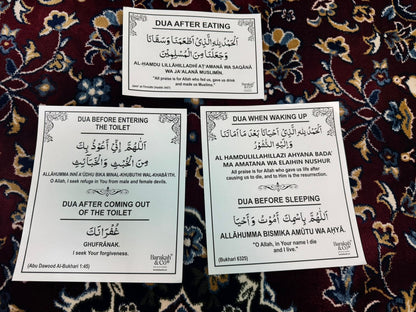 DUA AFTER EATING
اَلْحَمْدُ لِلّٰهِ الَّذِىْ اَطْعَمَنَا وَسَقَانَا
وَجَعَلَنَا مِنَ الْمُسْلِمِيْنَ
AL-HAMDU LILLÂHILLADHÎ AṬ'AMANÂ WA SAQÂNÂ
WA JA'ALANÂ MUSLIMÎN.
"All praise is for Allah who fed us, gave us drink
and made us Muslims."
Barakah
& Co
DUA BEFORE ENTERING
THE TOILET
اَللّٰهُمَّ اِنِّىْ اَعُوْذُ بِكَ
مِنَ الْخُبُثِ وَالْخَبَائِثِ
ALLÂHUMMA INNÎ A'ÛDHU BIKA MINAL-KHUBUTHI WAL-KHABÂ'ITH.
O Allah, I seek refuge in You from male and female devils.
DUA AFTER COMING OUT
OF THE TOILET
غُفْرَانَكَ
GHUFRÂNAK.
I seek Your forgiveness.
(Abu Dawood Al-Bukhari 1:45)
Barakah
& Co
DUA WHEN WAKING UP
اَلْحَمْدُ لِلّٰهِ الَّذِىْ اَحْيَانَا بَعْدَ مَا اَمَاتَنَا
وَاِلَيْهِ النُّشُوْرُ
AL HAMDUILLAHILLAZI AHYANA BADA'
MA AMATANA WA ELAIHIN NUSHUR
All praise is for Allah who gave us life after
causing us to die, and to Him is the resurrection.
DUA BEFORE SLEEPING
اَللّٰهُمَّ بِاِسْمِكَ اَمُوْتُ وَ اَحْيَا
ALLÂHUMMA BISMIKA AMÛTU WA AḤYÂ.
"O Allah, in Your name I die
and I live."
(Bukhari 6325)
Barakah
& Co